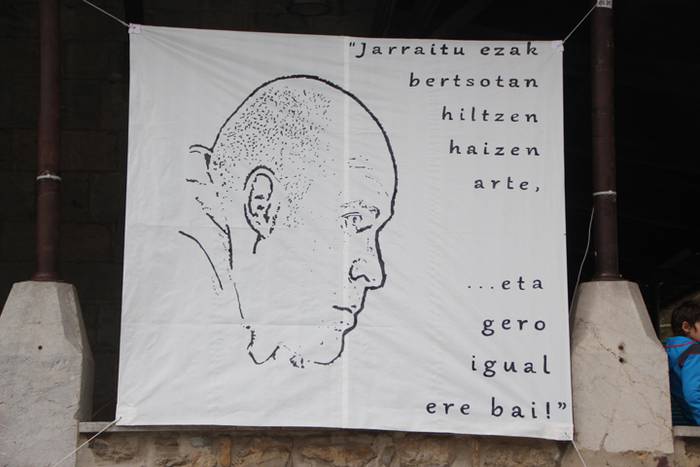 "Jarraitu ezak
bertsotan
hiltzen
haizen
arte,
...eta
gero
igual
ere bai!”